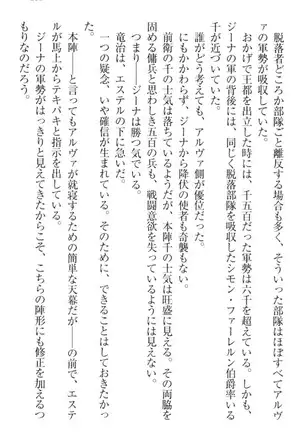 脱落者どころか部隊ごと離反する場合も多く、そういった部隊はほぼすべてアルヴ
ァの軍勢が吸収していた。
おかげで王都を出立した時には、千五百だった軍勢は六千を超えている。しかも、
ジーナの軍の背後には、同じく脱落部隊を吸収したシモン・ファーレルン伯爵率いる
部下が近づいていた。
誰がどう考えても、アルヴァ側が優位だった。
しかし、ジーナから降伏の使者も奇襲もない。
つまり――ジーナは勝つ気でいる。
前衛の千の士気は落ちているようだが、本陣千の士気は旺盛に見える。その両脇を
固める傭兵と思わしき五百の兵も、戦闘意欲を失っているようには見えない。
一つの疑念、いや確信が生まれている。そのために、できることはしておきたかっ
た。
竜治は、エステルの下に急いだ。
本陣――と言ってもアルヴァが就寝するための簡単な天幕だが――の前で、エステ
ルが馬上からテキパキと指示を出している。
ジーナの軍勢がはっきりと見えてきたからこそ、こちらの陣形にも修正を加えるつ
もりなのだろう。